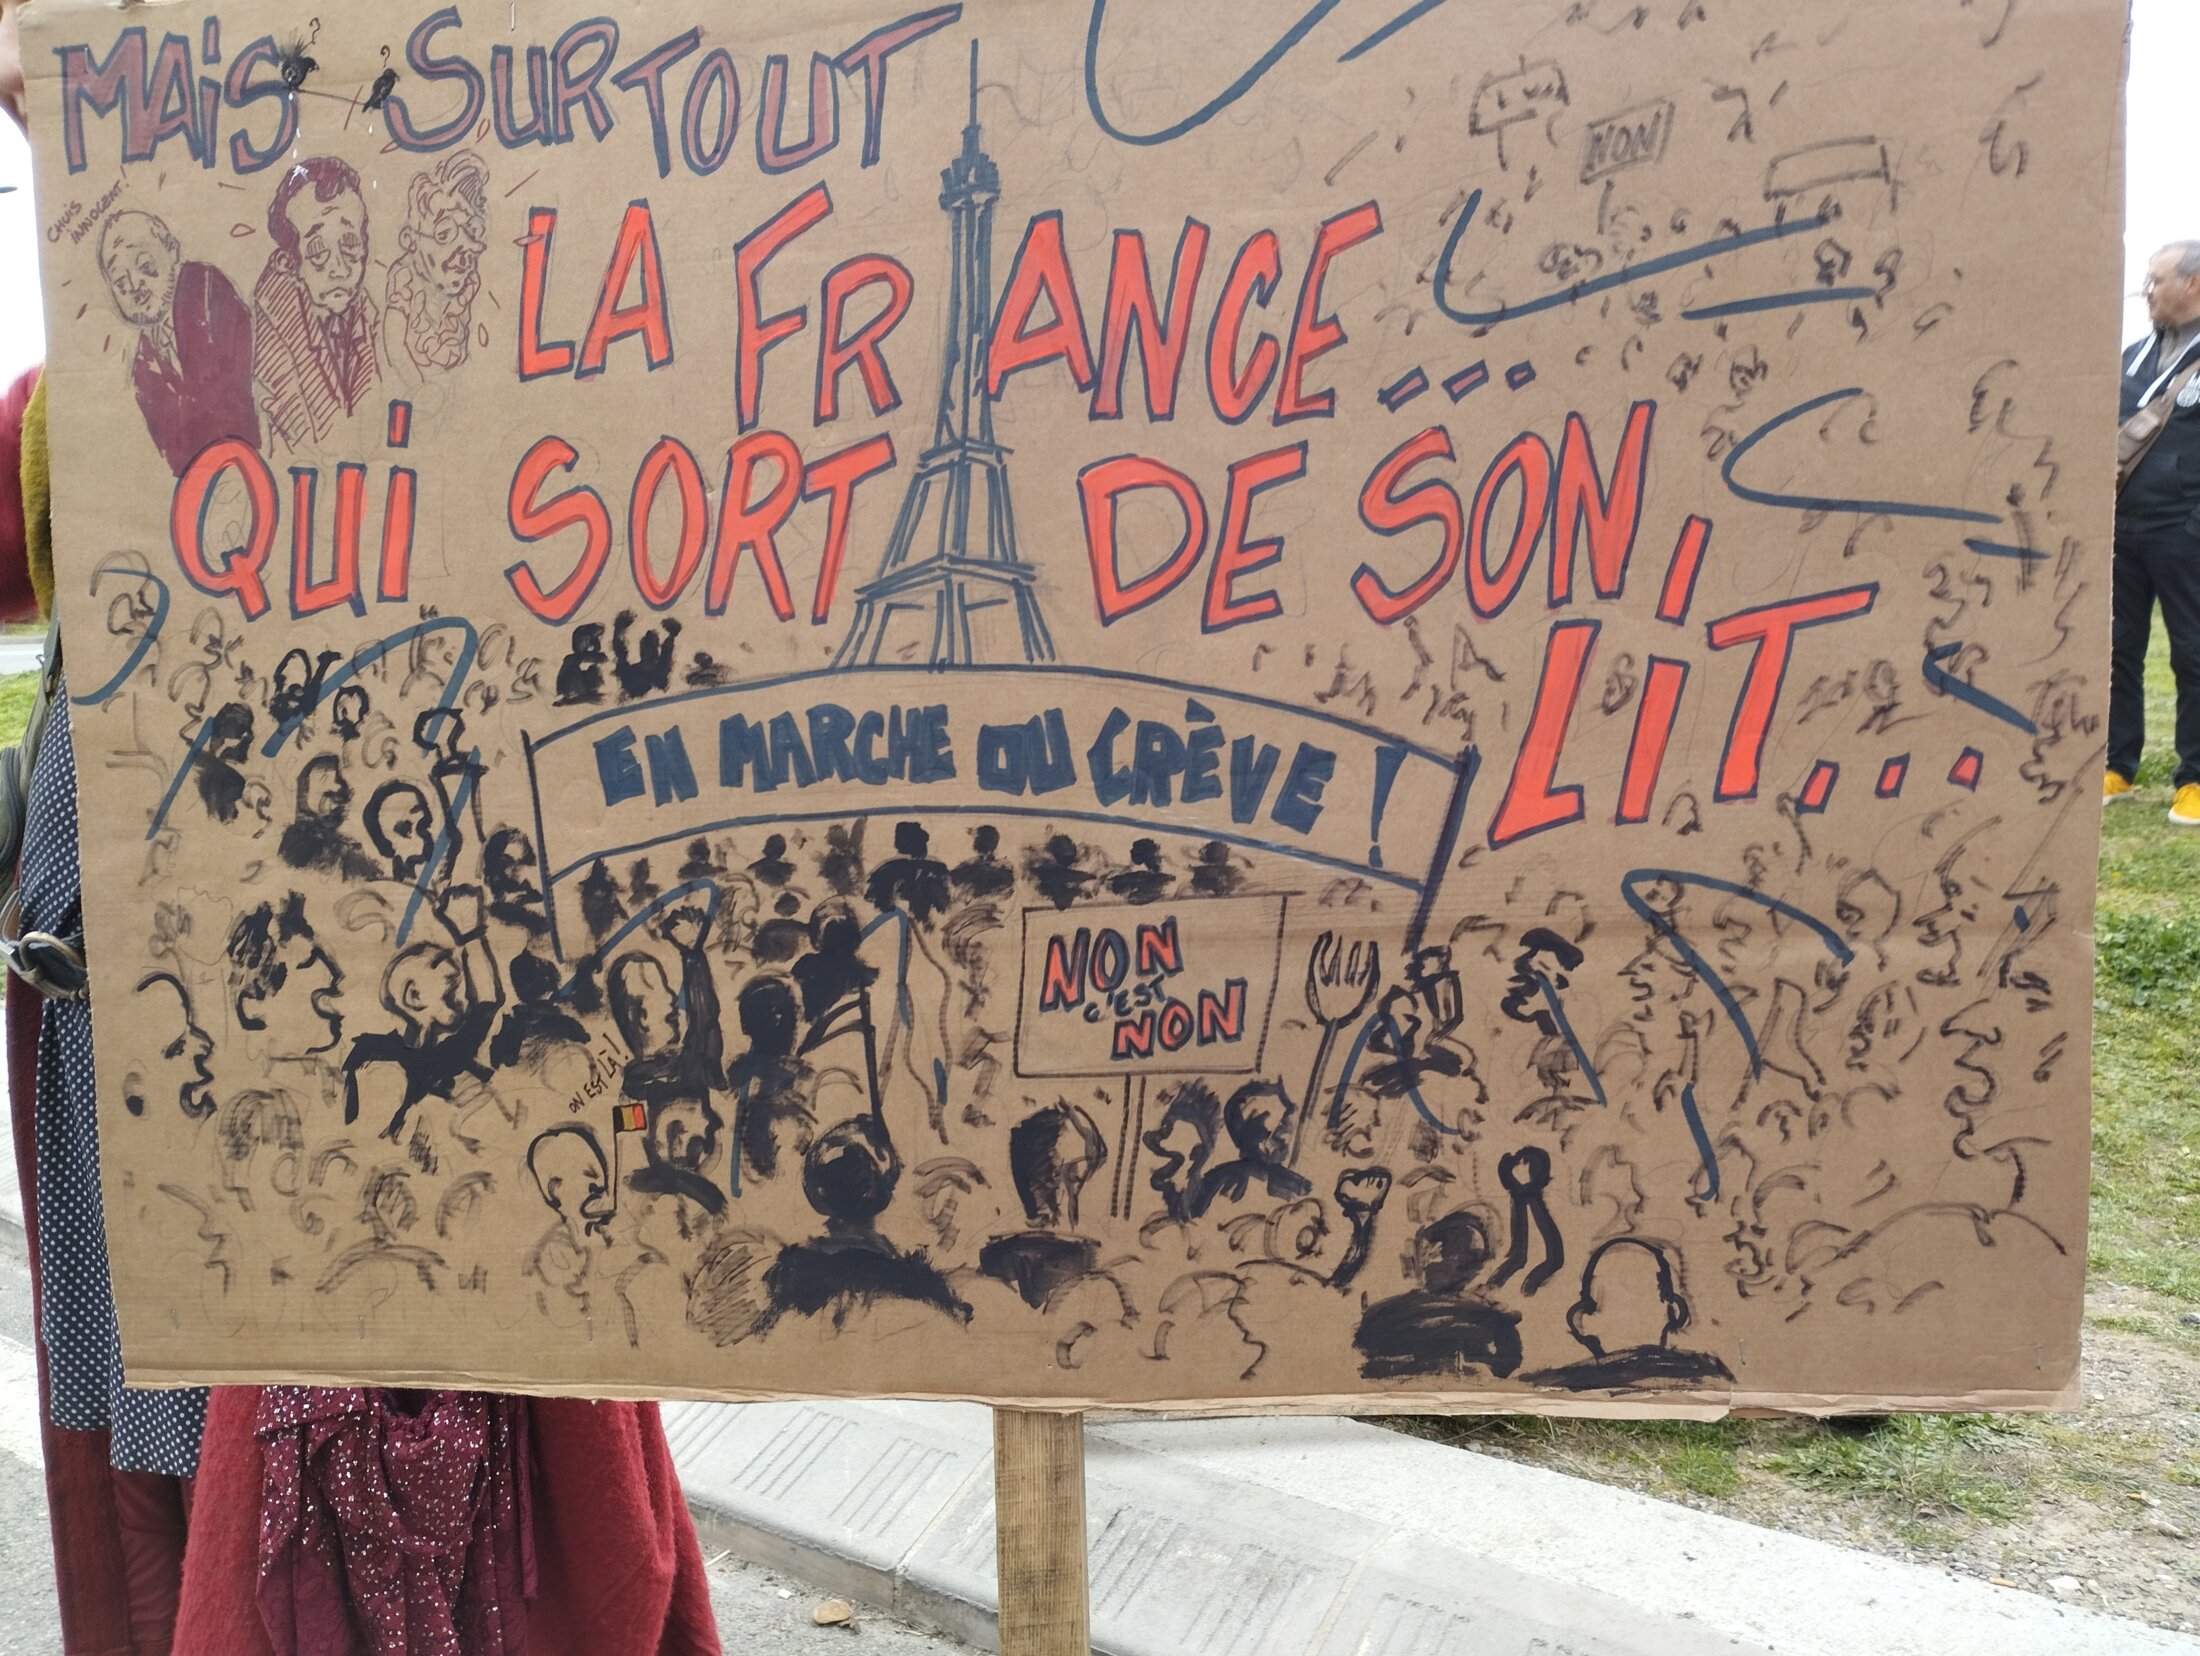 MAIS SURTOUT
CHUIS
INNOCENT!
LA FRANCE...
QUI SORT DE SON
LIT...
NON
EN MARCHE OU CRÈVE !
NON
C'EST
NON
ON EST LÀ!